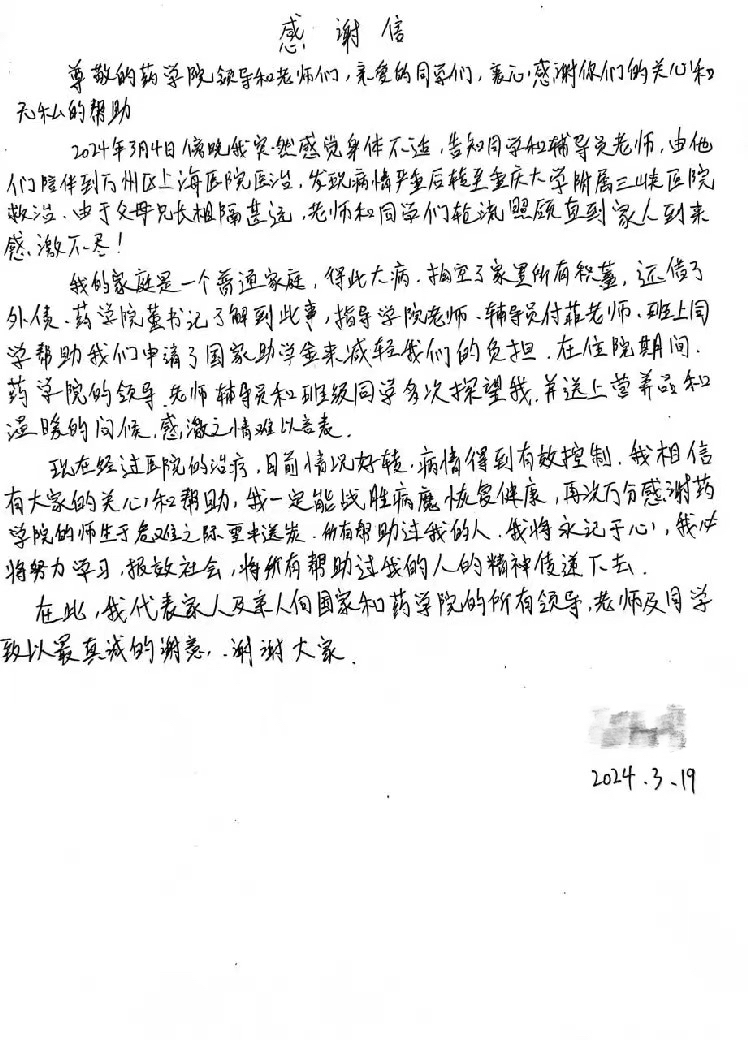 感谢信
尊敬的药学院领导和老师们，亲爱的同学们，衷心感谢你们的关心和
无私的帮助
2024年3月4日傍晚我突然感觉身体不适，告知同学和辅导员老师，由他
们陪伴到万州区上海医院医治，发现病情严重后转至重庆大学附属三峡医院
救治．由于父母兄长相隔甚远，老师和同学们轮流照顾直到家人到来
感激不尽！
我的家庭是一个普通家庭，得此大病．掏空了家里所有积蓄，还借了
外债、药学院董书记了解到此事，指导学院老师、辅导员付菲老师、班上同
学帮助我们申请了国家助学金来减轻我们的负担．在住院期间．
药学院的领导、老师辅导员和班级同学多次探望我，并送上营养品和
温暖的问候，感激之情难以言表．
现在经过医院的治疗，目前情况好转，病情得到有效控制．我相信
有大家的关心和帮助，我一定能战胜病魔恢复健康，再次万分感谢药
学院的师生于危难之际雪中送炭．所有帮助过我的人．我将永记于心，我必
将努力学习，报效社会，将所有帮助过我的人的精神传递下去．
在此，我代表家人及亲人向国家和药学院的所有领导，老师及同学
致以最真诚的谢意，．谢谢大家．
2024.3.19